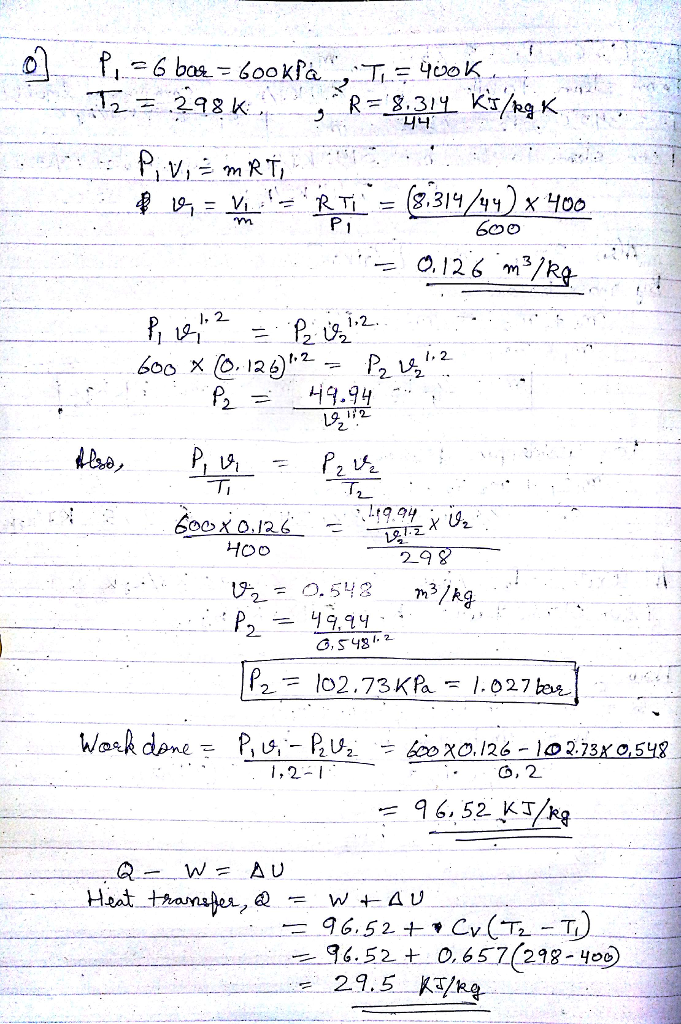 o] P₁ = 6 bar = 600KPa , T₁ = 400K
T₂ = 298K. , R = 8.314/44 KJ/kg K
P₁V₁ = mRT₁
v₁ = V₁/m = RT₁/P₁ = (8.314/44) x 400/600
= 0.126 m³/kg
P₁v₁^1.2 = P₂v₂^1.2
600 x (0.126)^1.2 = P₂v₂^1.2
P₂ = 49.94/v₂^1.2
Also, P₁v₁/T₁ = P₂v₂/T₂
600x0.126/400 = (49.94/v₂^1.2 x v₂)/298
v₂ = 0.548 m³/kg
P₂ = 49.94/0.548^1.2
P₂ = 102.73KPa = 1.027 bar
Work done = (P₁v₁ - P₂v₂)/(1.2-1) = (600x0.126 - 102.73x0.548)/0.2
= 96.52 KJ/kg
Q - W = ΔU
Heat transfer, Q = W + ΔU
= 96.52 + Cv(T₂ - T₁)
= 96.52 + 0.657(298-400)
= 29.5 KJ/kg